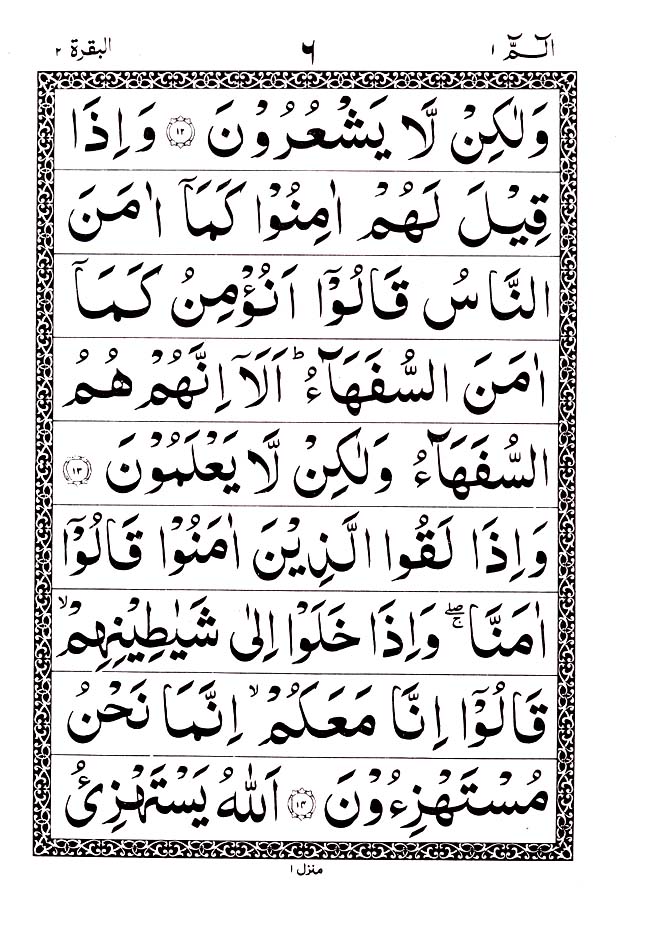 الٓـمّٓ ١ ٦ البقرة ٢
وَلٰكِنْ لَّا يَشْعُرُوْنَ ﴿١٢﴾ وَاِذَا
قِيْلَ لَهُمْ اٰمِنُوْا كَمَاۤ اٰمَنَ
النَّاسُ قَالُوْۤا اَنُؤْمِنُ كَمَاۤ
اٰمَنَ السُّفَهَآءُ ؕ اَلَاۤ اِنَّهُمْ هُمُ
السُّفَهَآءُ وَلٰكِنْ لَّا يَعْلَمُوْنَ ﴿١٣﴾
وَاِذَا لَقُوا الَّذِيْنَ اٰمَنُوْا قَالُوْۤا
اٰمَنَّا ۖۚ وَاِذَا خَلَوْا اِلٰى شَيٰطِيْنِهِمْ ۙ
قَالُوْۤا اِنَّا مَعَكُمْ ۙ اِنَّمَا نَحْنُ
مُسْتَهْزِءُوْنَ ﴿١٤﴾ اَللّٰهُ يَسْتَهْزِئُ
منزل ١